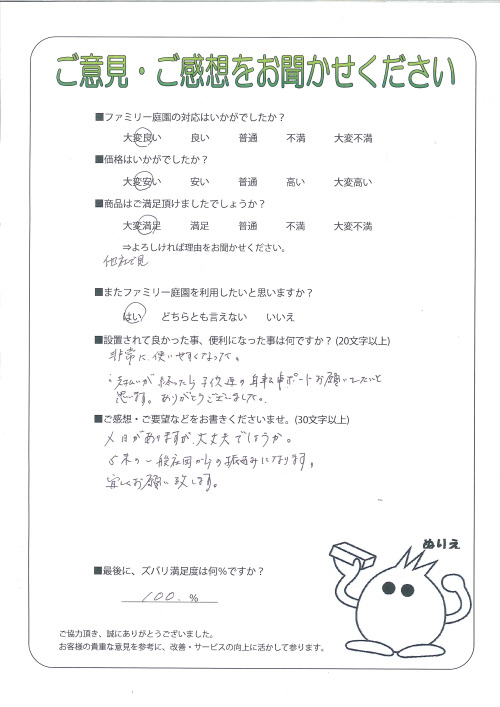 ご意見・ご感想をお聞かせください
■ファミリー庭園の対応はいかがでしたか？
大変良い 良い 普通 不満 大変不満
■価格はいかがでしたか？
大変安い 安い 普通 高い 大変高い
■商品はご満足頂けましたでしょうか？
大変満足 満足 普通 不満 大変不満
⇒よろしければ理由をお聞かせください。
他社で見
■またファミリー庭園を利用したいと思いますか？
はい どちらとも言えない いいえ
■設置されて良かった事、便利になった事は何ですか？(20文字以上)
非常に使いやすくなった。
支払いが終ったら子供達の自転車ポートお願いしたいと
思います。ありがとうございました。
■ご感想・ご要望などをお書きくださいませ。(30文字以上)
〆日がありますが、大丈夫でしょうか。
の一般社団からの振込みになります。
宜しくお願い致します。
ぬりえ
■最後に、ズバリ満足度は何％ですか？
100. %
ご協力頂き、誠にありがとうございました。
お客様の貴重な意見を参考に、改善・サービスの向上に活かして参ります。